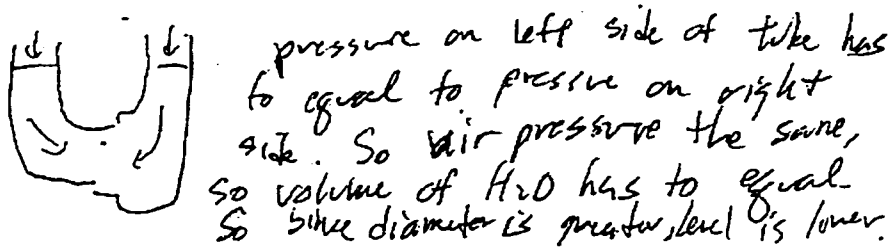 pressure on left side of tube has
to equal to pressure on right
side. So air pressure the same,
so volume of H2O has to equal.
So since diameter is greater, level is lower.